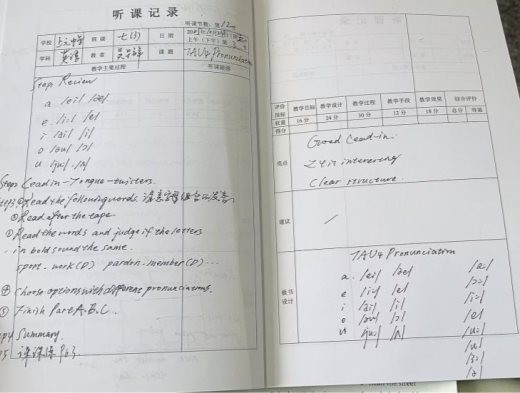 听课记录
听课节数：第12节
学校 班级 七(3) 日期
上午（下午）第 节
学科 英语 教者 课题 7AU4 Pronunciation
教学主要过程 听课随感
Step1 Review
a /ei/ /æ/
e /i:/ /e/
i /ai/ /i/
o /əu/ /ɔ/
u /ju:/ /ʌ/
Step2 Lead in - Tongue-twisters.
Step3 ① Read the following words 注意字母组合的发音.
② Read after the tape
③ Read the words and judge if the letters
in bold sound the same.
sport - work (D) pardon - member (D) ...
④ Choose options with different pronunciations.
⑤ Finish Part A. B. C.
Step4 Summary.
评价指标 教学目标 教学设计 教学过程 教学手段 教学效果 综合评价
权重 16分 24分 30分 12分 18分 总分 等第
得分
亮点
Good Lead-in.
is interesting
Clear structure
建议 /
板书设计
7AU4 Pronunciation
a /ei/ /æ/ /a:/
e /i:/ /e/ /ɔ:/
i /ai/ /i/ /i:/
o /əu/ /ɔ/ /e/
u /ju:/ /ʌ/ /u:/
/u/
/ɜ:/
/ə/